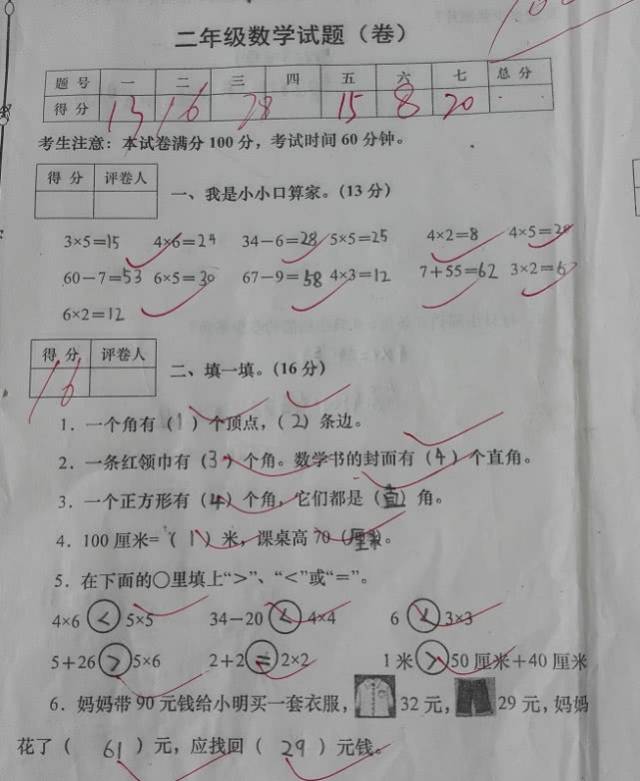 二年级数学试题（卷）
题 号 一 二 三 四 五 六 七 总 分
得 分 13 16 28 15 8 20
考生注意：本试卷满分 100 分，考试时间 60 分钟。
得 分 评卷人
一、我是小小口算家。(13 分)
3×5=15 4×6=24 34－6=28 5×5=25 4×2=8 4×5=20
60－7=53 6×5=30 67－9=58 4×3=12 7＋55=62 3×2=6
6×2=12
得 分 评卷人
16
二、填一填。(16 分)
1．一个角有（1）个顶点，（2）条边。
2．一条红领巾有（3）个角。数学书的封面有（4）个直角。
3．一个正方形有（4）个角，它们都是（直）角。
4．100 厘米=（1）米，课桌高 70（厘米）。
5．在下面的○里填上“>”、“<”或“=”。
4×6 < 5×5 34－20 < 4×4 6 < 3×3
5＋26 > 5×6 2＋2 = 2×2 1 米 > 50 厘米＋40 厘米
6．妈妈带 90 元钱给小明买一套衣服， 32 元， 29 元，妈妈
花了（ 61 ）元，应找回（ 29 ）元钱。